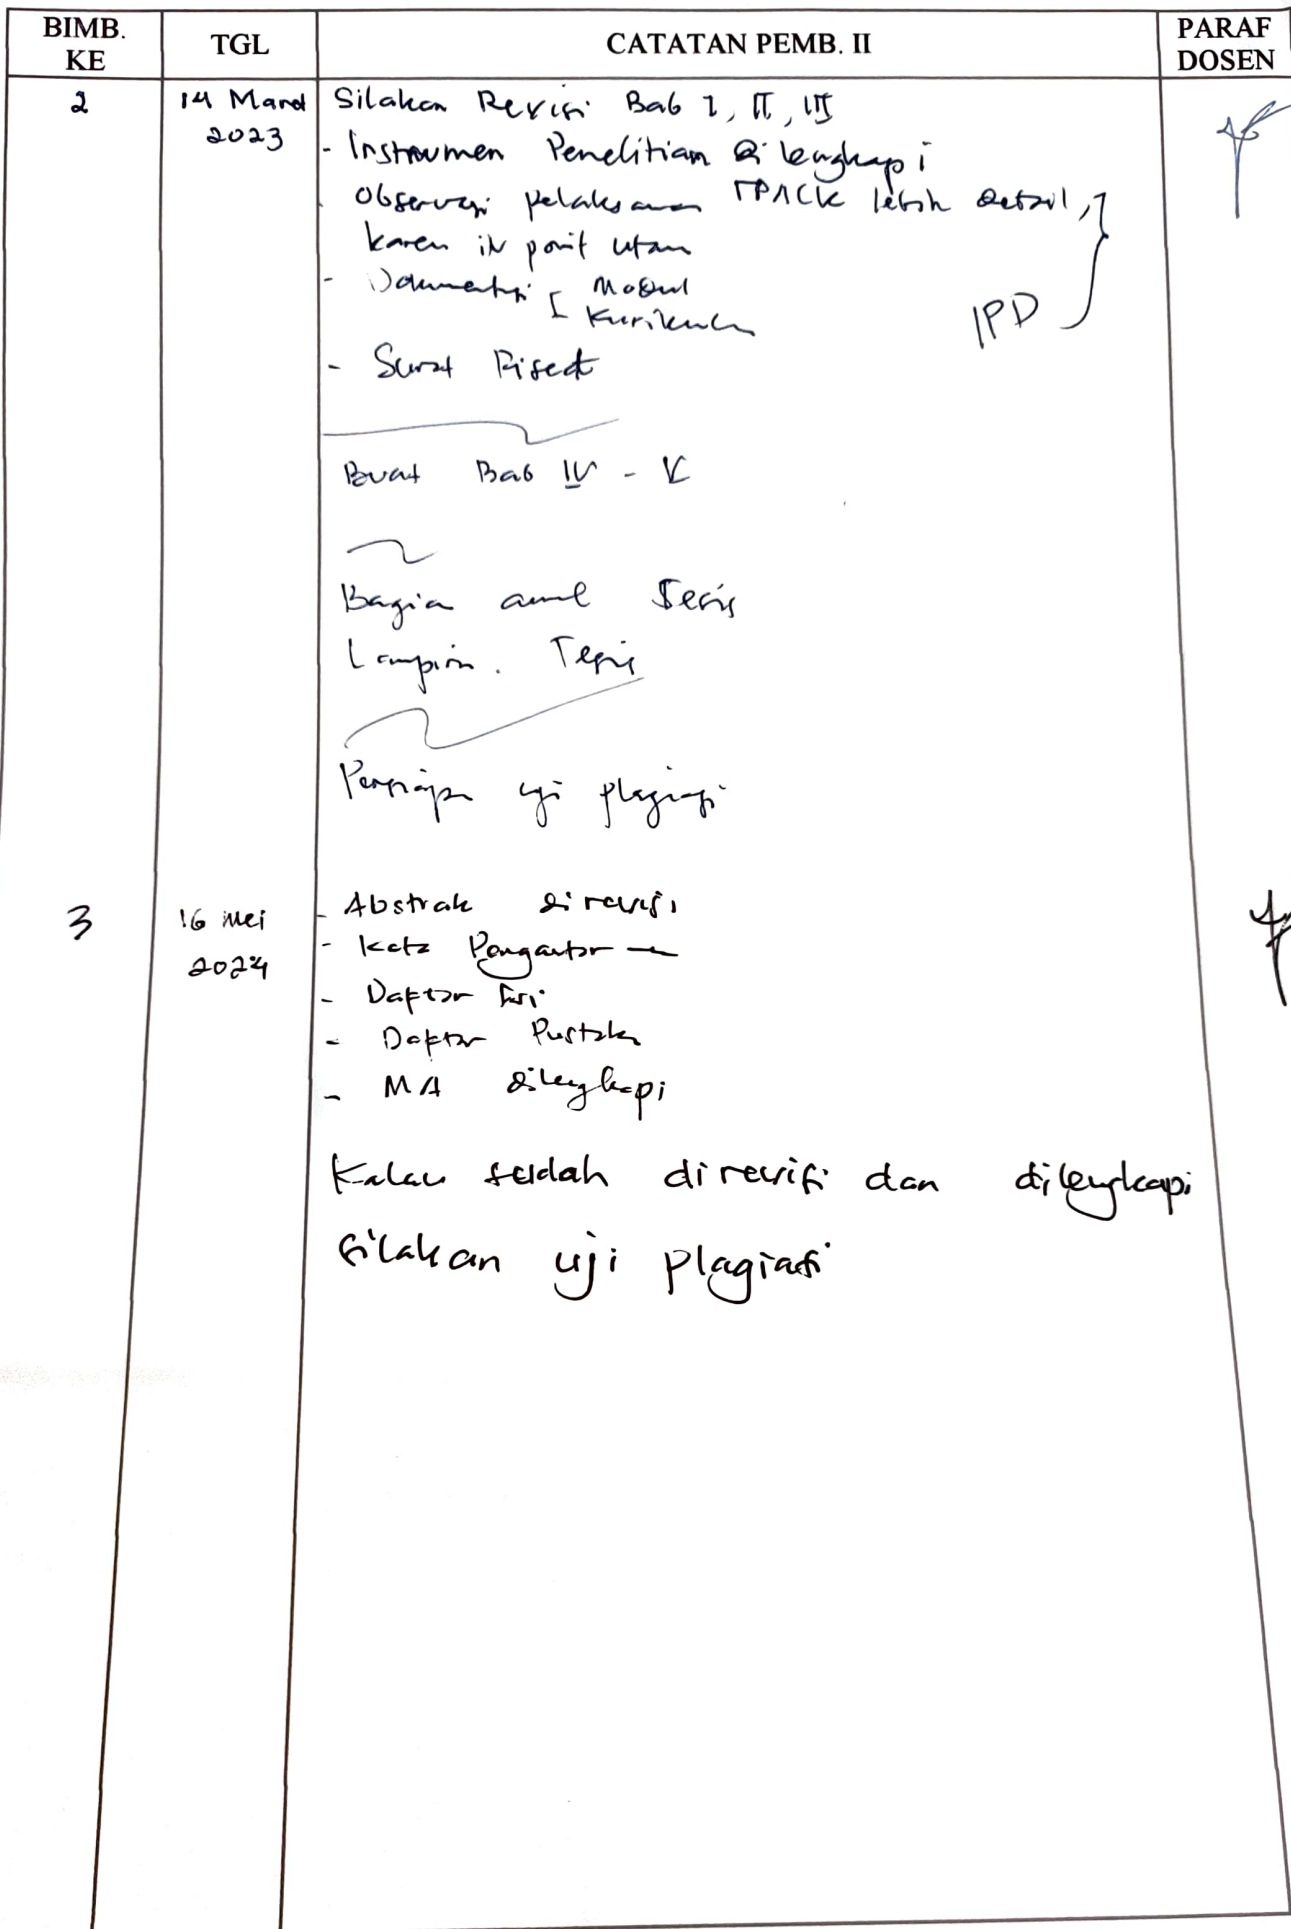 BIMB. KE
TGL
CATATAN PEMB. II
PARAF DOSEN
2
14 Maret 2023
Silakan Revisi Bab I, II, III
- Instrumen Penelitian dilengkapi
- Observasi pelaksanaan TPACK lebih detail,
karena ini point utama
- Dokumentasi [ Modul
Kurikulum
IPD
- Surat Riset
Buat Bab IV - V
Bagian awal Tesis
Lampiran Tesis
Persiapan uji plagiasi
3
16 Mei 2024
- Abstrak direvisi
- Kata Pengantar
- Daftar Isi
- Daftar Pustaka
- MA dilengkapi
Kalau sudah direvisi dan dilengkapi
silakan uji plagiasi